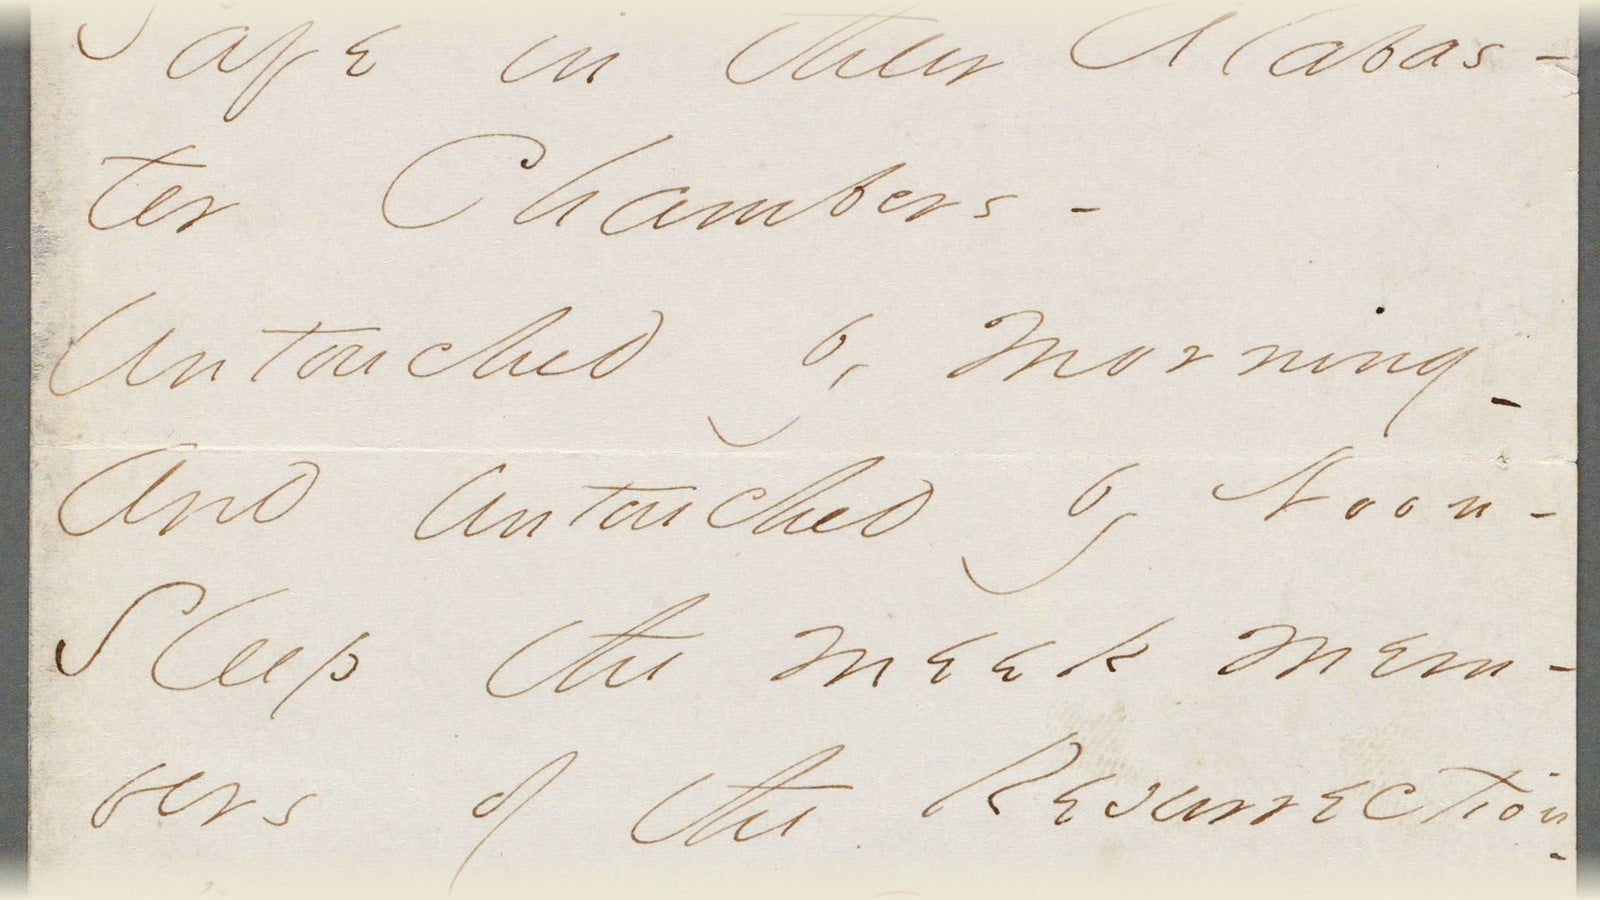 Safe in their Alabas-
ter Chambers -
Untouched by Morning -
And untouched by Noon -
Sleep the meek mem-
bers of the Resurrection -